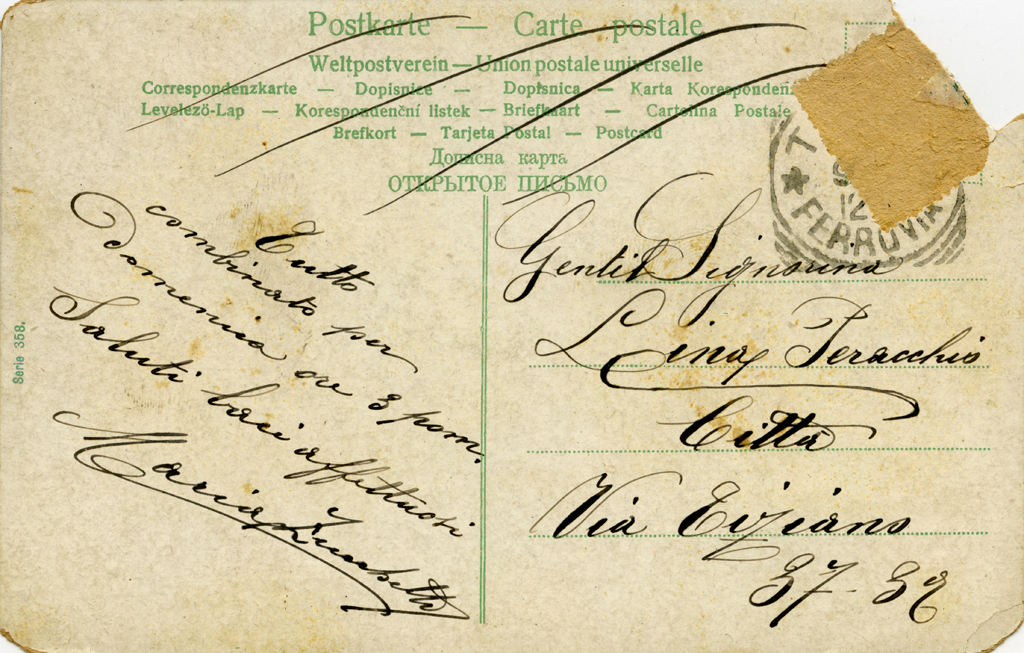 Postkarte — Carte postale
Weltpostverein — Union postale universelle
Correspondenzkarte — Dopisnice — Dopisnica — Karta Korespondenz
Levelező-Lap — Korespondenční listek — Briefkaart — Cartolina Postale
Brefkort — Tarjeta Postal — Postcard
Дописна карта
ОТКРЫТОЕ ПИСЬМО
FERROVIA
12
Serie 358.
Tutto
combinato per
Domenica ore 3 pom.
Saluti baci affettuosi
Maria
Gentil Signorina
Lina Peracchio
Città
Via Tiziano
37-